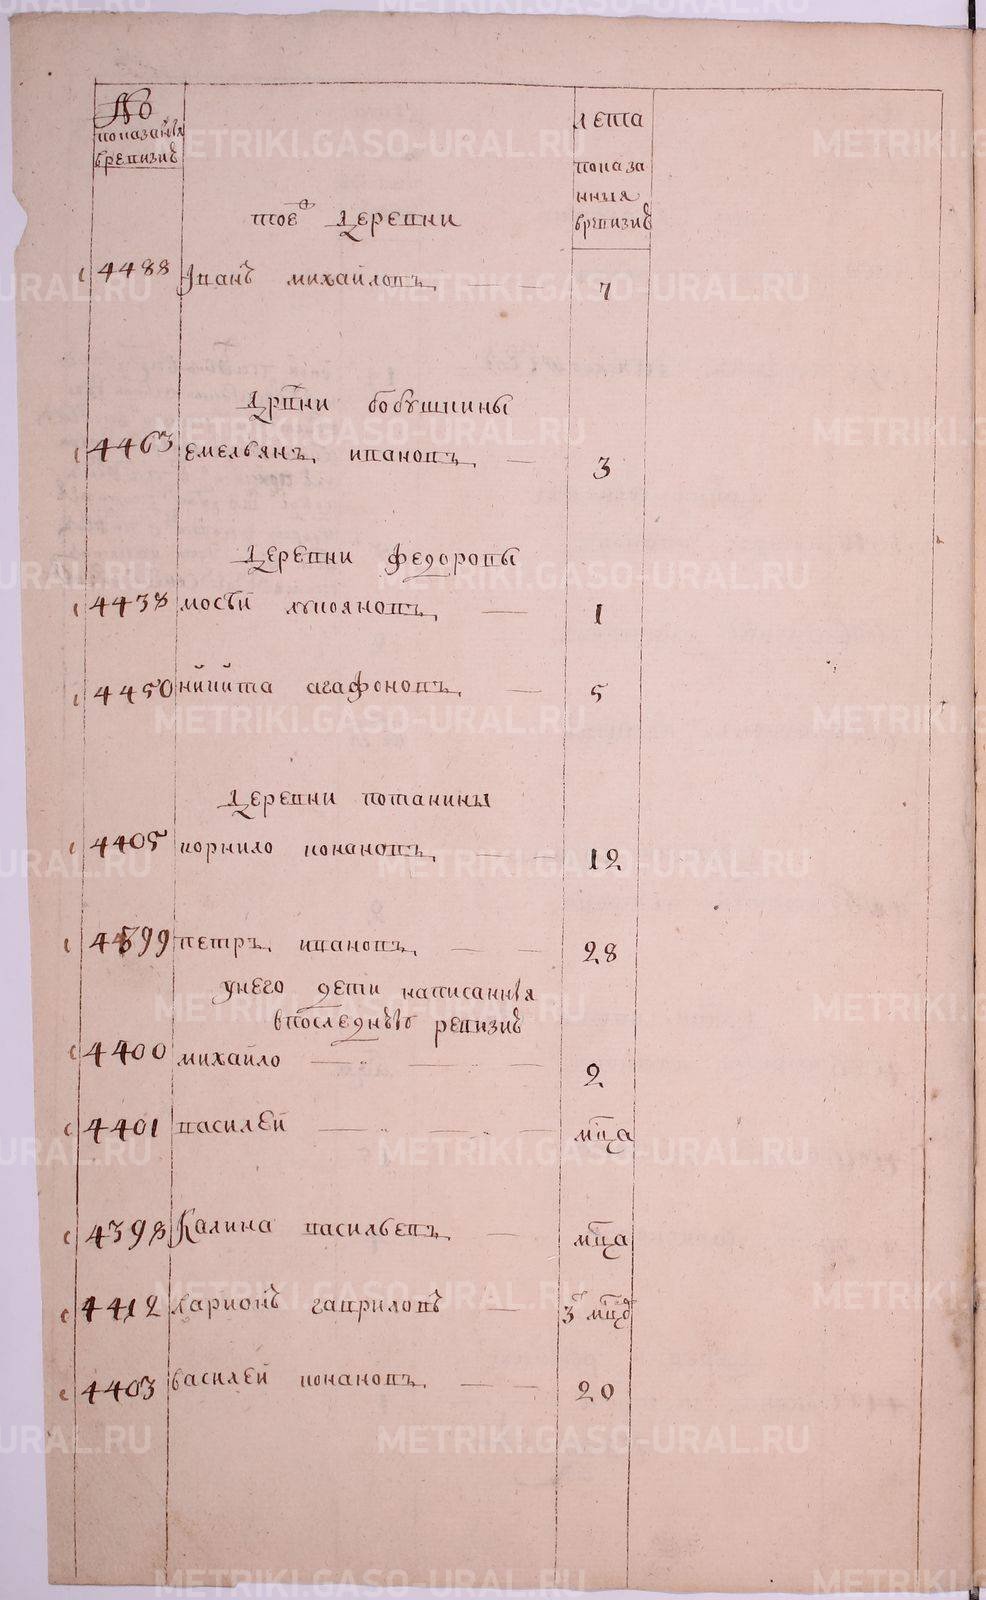 №
показанъія
вревизиѣ
лета
показа
нныя
вревизиѣ
тоеѣ деревни
4488 Iванъ михайловъ 7
дрвни бобушкины
4463 емельянъ ивановъ 3
деревни федоровы
4438 мосѣй лукояновъ 1
4450 никита агафоновъ 5
деревни потанины
4405 корнило конановъ 12
4399 петръ ивановъ 28
унего дети написанныя
впоследнѣю ревизиѣ
4400 михайло 2
4401 василей мца
4398 Калина васильевъ мца
4412 ларионъ гавриловъ 3 мцо
4403 василей конановъ 20
METRIKI.GASO-URAL.RU